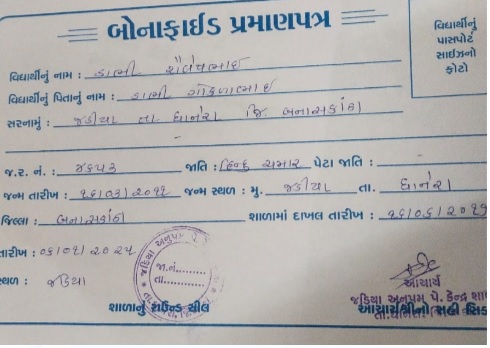 બોનાફાઈડ પ્રમાણપત્ર
વિદ્યાર્થીનું
પાસપોર્ટ
સાઈઝનો
ફોટો
વિદ્યાર્થીનું નામ : ડાભી શૈલેષભાઈ
વિદ્યાર્થીના પિતાનું નામ : ડાભી ગોકળભાઈ
સરનામું : જડીયા તા ધાનેરા જિ. બનાસકાંઠા
જ.ર. નં. : જાતિ : હિન્દુ ચમાર પેટા જાતિ : -
જન્મ તારીખ : ૧૬/૦૩/૨૦૧૧ જન્મ સ્થળ : મુ. જડીયા તા. ધાનેરા
જિલ્લા : બનાસકાંઠા શાળામાં દાખલ તારીખ :
તારીખ : ૦૬/૦૧/૨૦૨૫
સ્થળ : જડિયા
જા.નં.
તા.
શાળાનું રાઉન્ડ સીલ
આચાર્ય
જડિયા અનુપમ પે. કેન્દ્ર શા
આચાર્યશ્રીની સહી સિક્